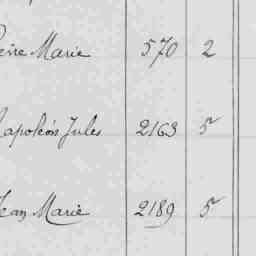 Pierre Marie 570 2
Napoléon Jules 2163 5
Jean Marie 2189 5